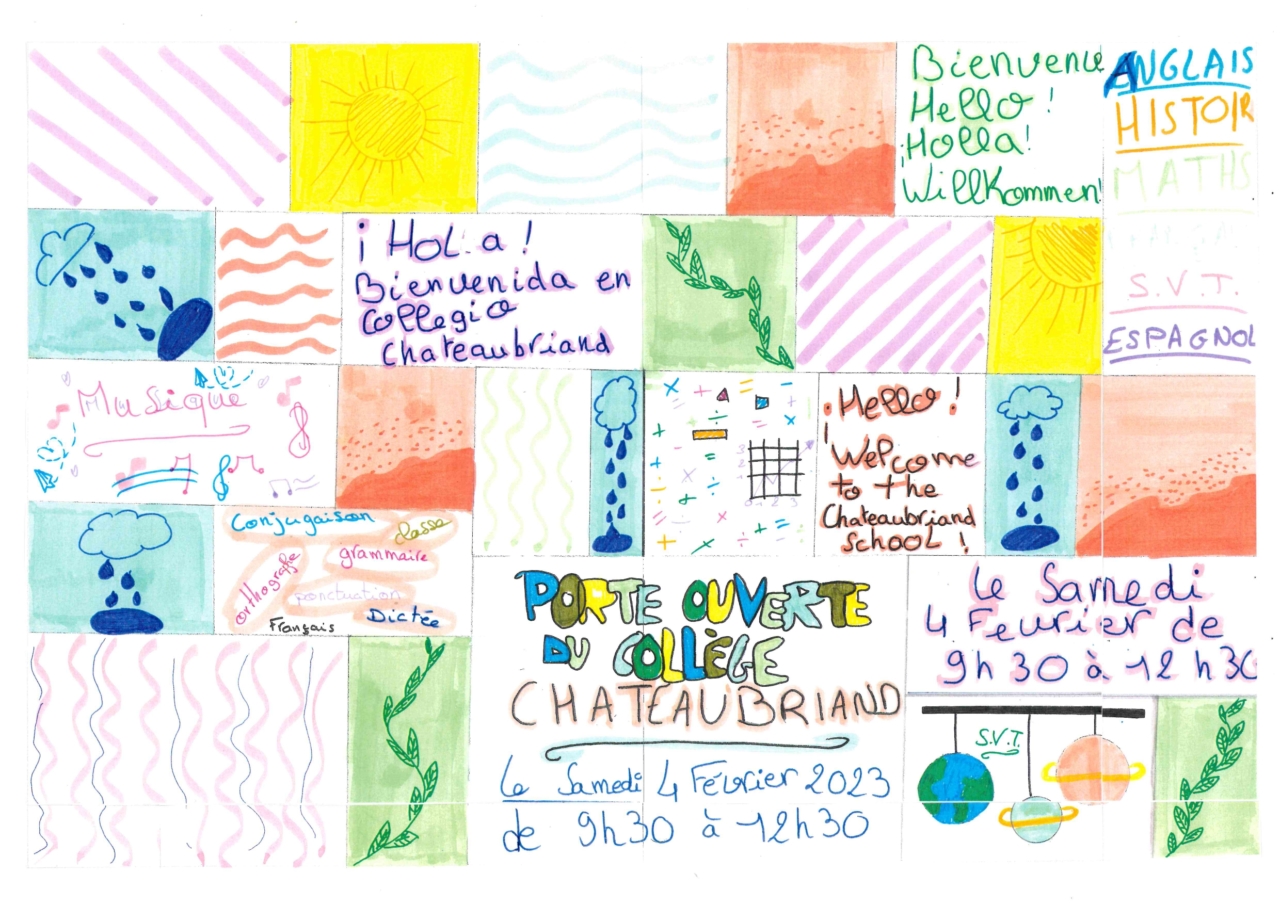 Bienvenue
Hello !
¡Holla!
Willkommen!
ANGLAIS
HISTOIR
MATHS
S.V.T.
ESPAGNOL
¡ Hola !
Bienvenida en
Collegio
Chateaubriand
Musique
¡Hello !
Welcome
to the
Chateaubriand
School !
Conjugaison
classe
orthographe
grammaire
ponctuation
Dictée
Français
PORTE OUVERTE
DU COLLÈGE
CHATEAUBRIAND
Le Samedi 4 Février 2023
de 9h30 à 12h30
Le Samedi
4 Feurier de
9h 30 à 12 h 30
S.V.T.